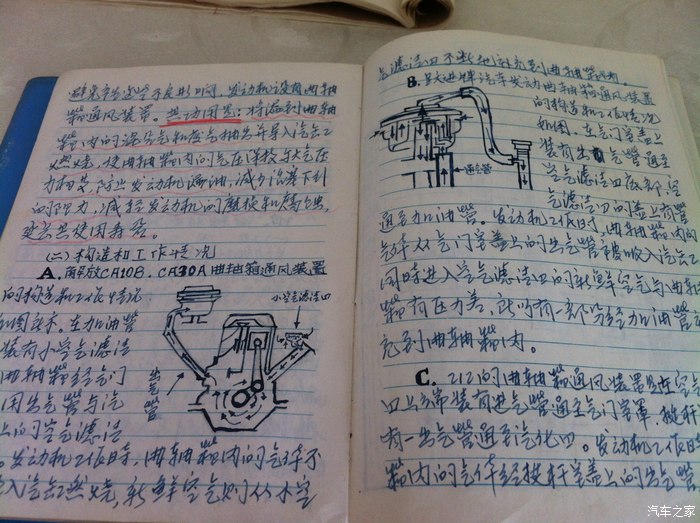 避免产生这些不良影响，发动机设有曲轴
箱通风装置。其功用是：将漏到曲轴
箱内的混合气和废气抽出并导入汽缸
燃烧，使曲轴箱内的气压保持与大气压
力相等，防止发动机漏油，减少活塞下行
的阻力，减轻发动机的磨损和腐蚀，
延长其使用寿命。
(二) 构造和工作情况
A、解放CA10B、CA30A曲轴箱通风装置
的构造和工作情况
如图所示。在加油管
装有小空气滤清
曲轴箱经气门
用出气管与汽
上的空气滤清
。发动机工作时，曲轴箱内的气体不
入汽缸燃烧，新鲜空气则从小空
小空气滤清口
出气管
气滤清口不断地补充到曲轴箱内
B、跃进牌汽车发动机曲轴箱通风装置
的构造和工作情况
如图，在气门室盖上
装有出气管通至
空气滤清口底部，空
气滤清口的盖上有管
通至加油管。发动机工作时，曲轴箱内的
气体从气门室盖上的出气管被吸入汽缸，
同时进入空气滤清口的新鲜空气与曲轴
箱有压力差，所以有一部分经加油管
充到曲轴箱内。
通气管
C、212的曲轴箱通风装置是在空气
口上部装有进气管通至气门室罩，挺杆
有一出气管通到汽化口。发动机工作时
箱内的气体经挺杆室盖上的出气管
汽车之家